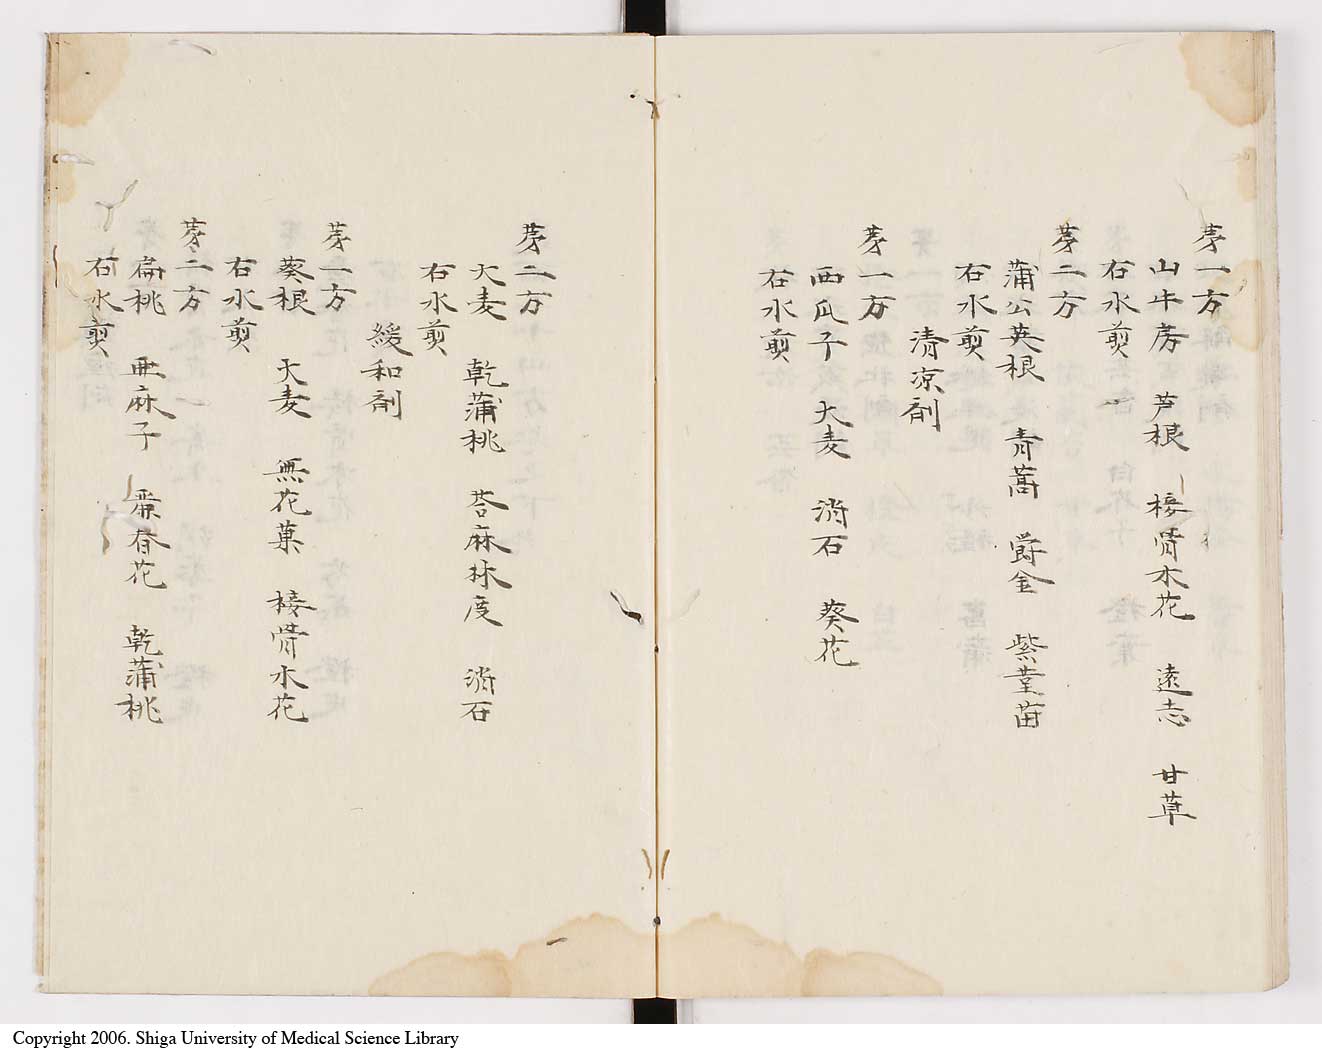 茅一方
山牛房 芦根 椄骨木花 遠志 甘草
右水煎
茅二方
蒲公英根 青蒿 欝金 紫菫苗
右水煎
清凉剤
茅一方
西瓜子 大麦 消石 葵花
右水煎
茅二方
大麦 乾蒲桃 荅麻林度 消石
右水煎
緩和剤
茅一方
葵根 大麦 無花菓 椄骨木花
右水煎
茅二方
扁桃 亜麻子 麗春花 乾蒲桃
右水煎
Copyright 2006. Shiga University of Medical Science Library